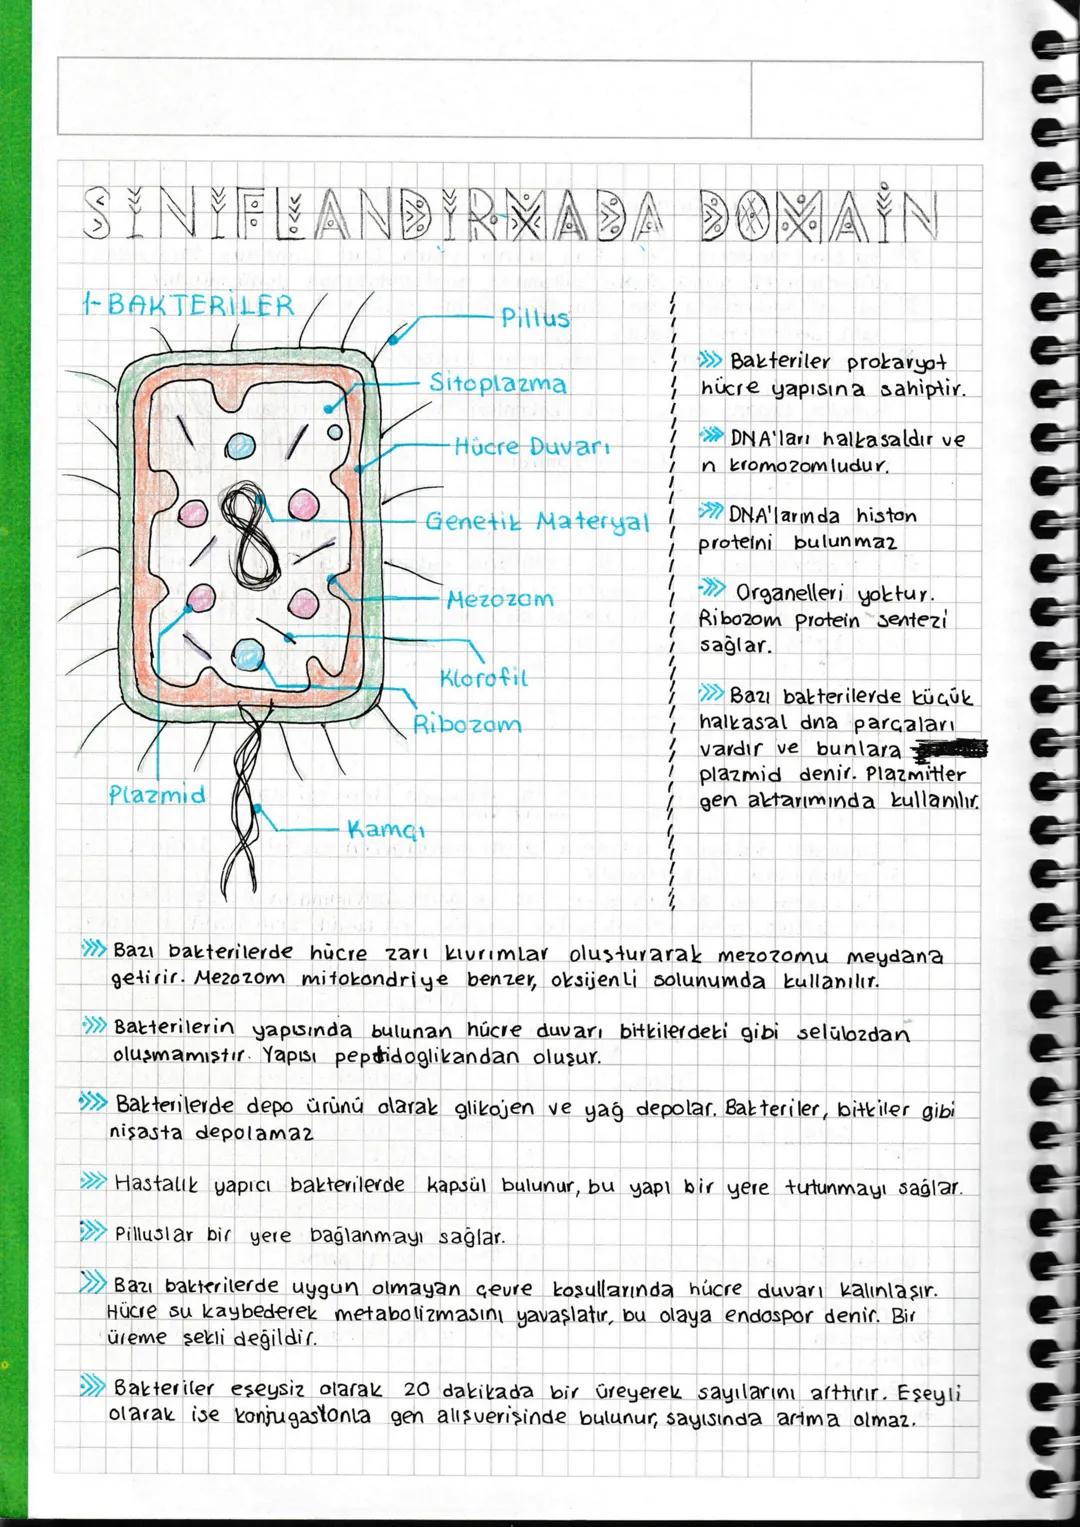 SINIFLANDIRMADA DOMAİN
1-BAKTERİLER
Pillus
Sitoplazma
Hücre Duvarı
Genetik Materyal
Mezozom
Klorofil
Ribozom
Plazmid
Kamçı
Bakteriler prokaryot
hücre yapısına sahiptir.
DNA'ları halkasaldır ve
n kromozomludur.
DNA'larında histon
proteini bulunmaz
Organelleri yoktur.
Ribozom protein sentezi
sağlar.
Bazı bakterilerde küçük
halkasal dna parçaları
vardır ve bunlara
plazmid denir. Plazmitler
gen aktarımında kullanılır.
Bazı bakterilerde hücre zarı kıvrımlar oluşturarak mezozomu meydana
getirir. Mezozom mitokondriye benzer, oksijenli solunumda kullanılır.
Bakterilerin yapısında bulunan hücre duvarı bitkilerdeki gibi selülozdan
oluşmamıştır. Yapısı peptidoglikandan oluşur.
Bakterilerde depo ürünü olarak glikojen ve yağ depolar. Bakteriler, bitkiler gibi
nişasta depolamaz
Hastalık yapıcı bakterilerde kapsül bulunur, bu yapı bir yere tutunmayı sağlar.
Pilluslar bir yere bağlanmayı sağlar.
Bazı bakterilerde uygun olmayan çevre koşullarında hücre duvarı kalınlaşır.
Hücre su kaybederek metabolizmasını yavaşlatır, bu olaya endospor denir. Bir
üreme şekli değildir.
Bakteriler eşeysiz olarak 20 dakikada bir üreyerek sayılarını arttırır. Eşeyli
olarak ise konjugastonla gen alışverişinde bulunur, sayısında artma olmaz.